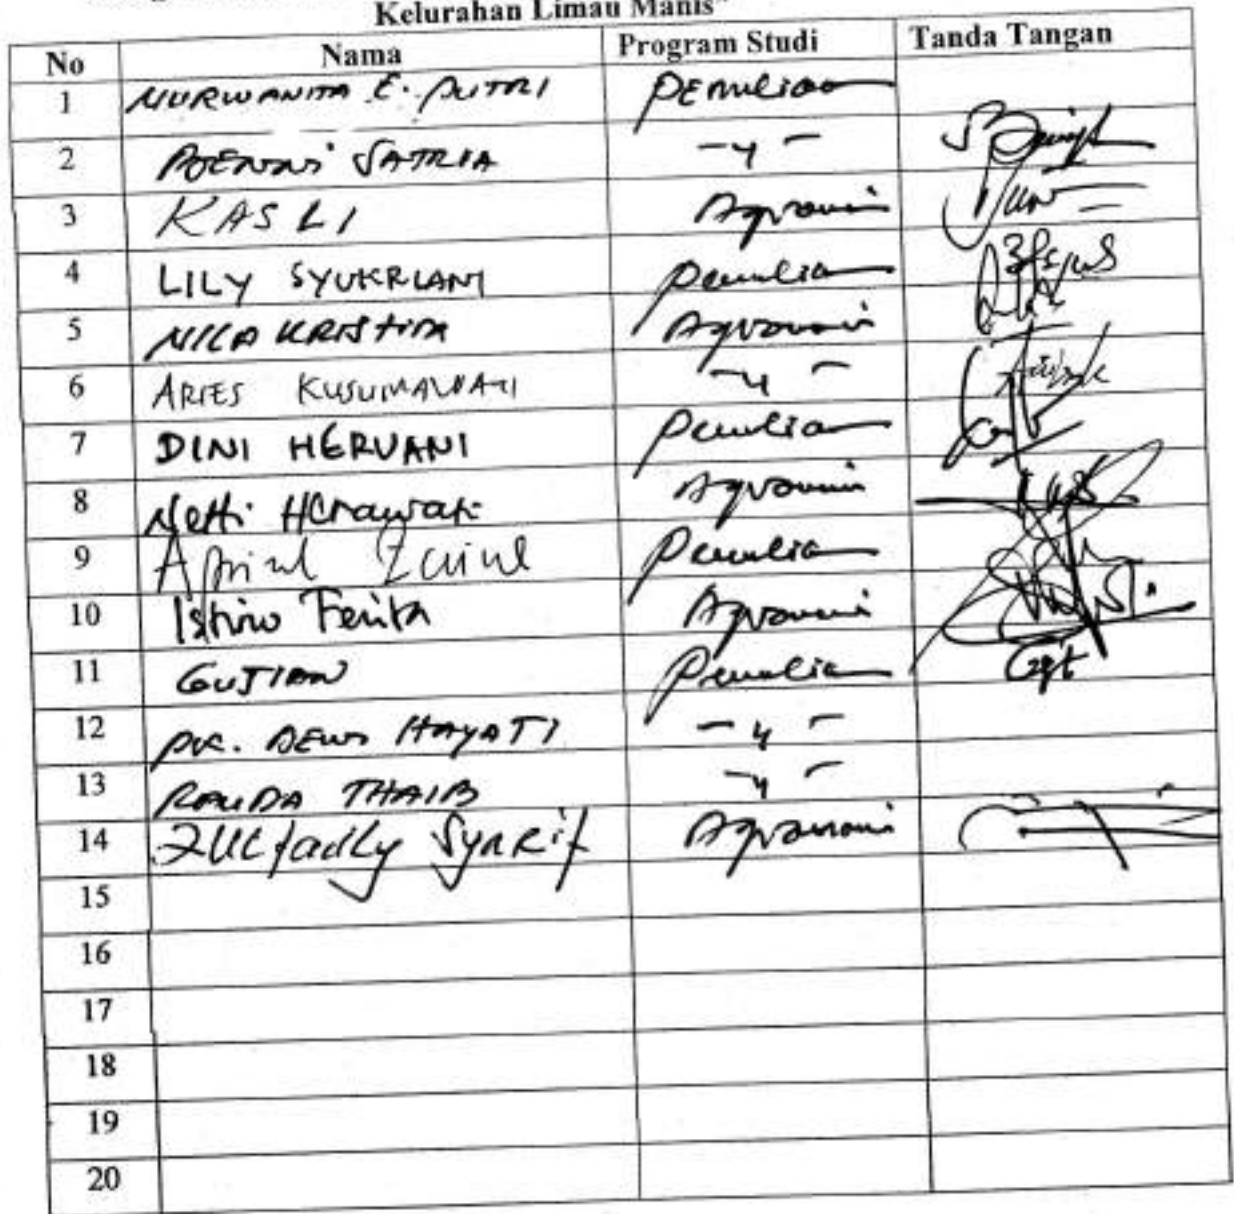 Kelurahan Limau Manis"
No Nama Program Studi Tanda Tangan
1 NURWANITA E. PUTRI Pemuliaan
2 BENNI SATRIA -〃-
3 KASLI Agronomi
4 LILY SYUKRIANI Pemuliaan
5 NILA KRISTINA Agronomi
6 ARIES KUSUMAWATI -〃-
7 DINI HERVANI Pemuliaan
8 Netti Herawati Agronomi
9 Aprizal Zainal Pemuliaan
10 Istino Ferita Agronomi
11 GUSTIAN Pemuliaan
12 PK. DEWI HAYATI -〃-
13 RENDA THAIB -〃-
14 ZULfadly Syarif Agronomi
15
16
17
18
19
20